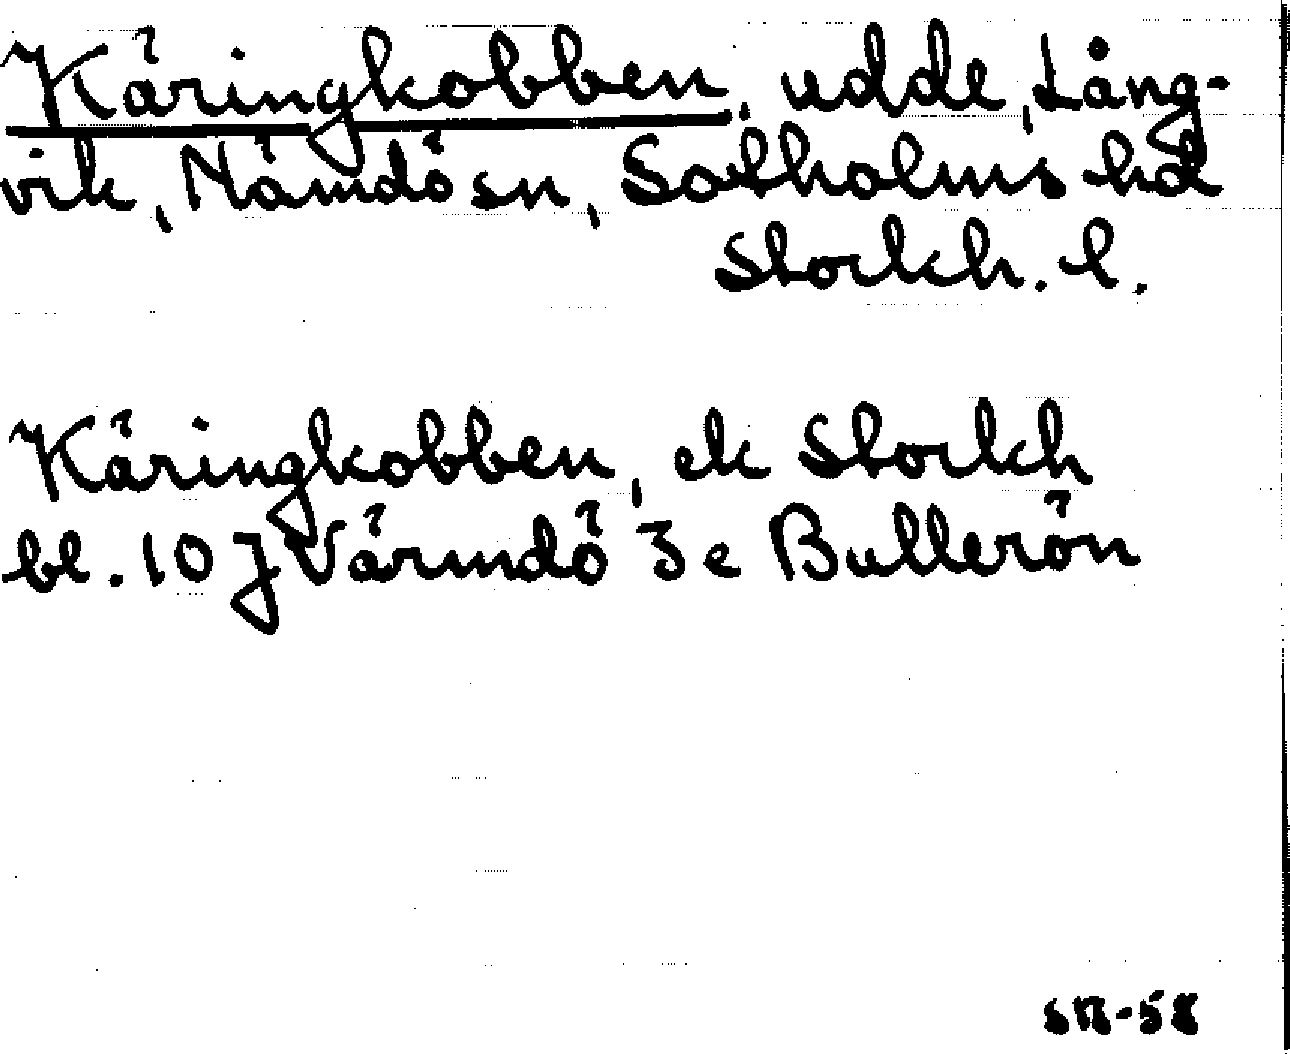 Käringkobben, udde, Lång-
vik, Nämdö sn, Sotholms hd
Stockh. l.
Käringkobben, ek Stockh
bl. 10 J Värmdö 3 e Bullerön